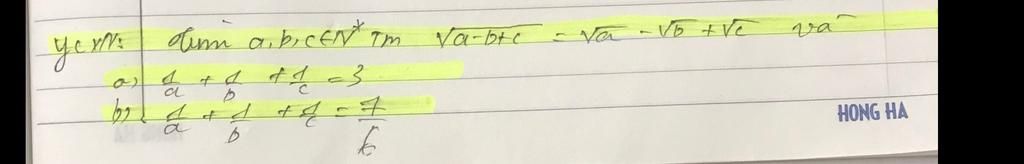 ycxN: dim a,b,c ∈ N* Tm √a-b+c = √a - √b + √c và
a) 1/a + 1/b + 1/c = 3
b) 1/a + 1/b + 1/c = 7/6
HONG HA